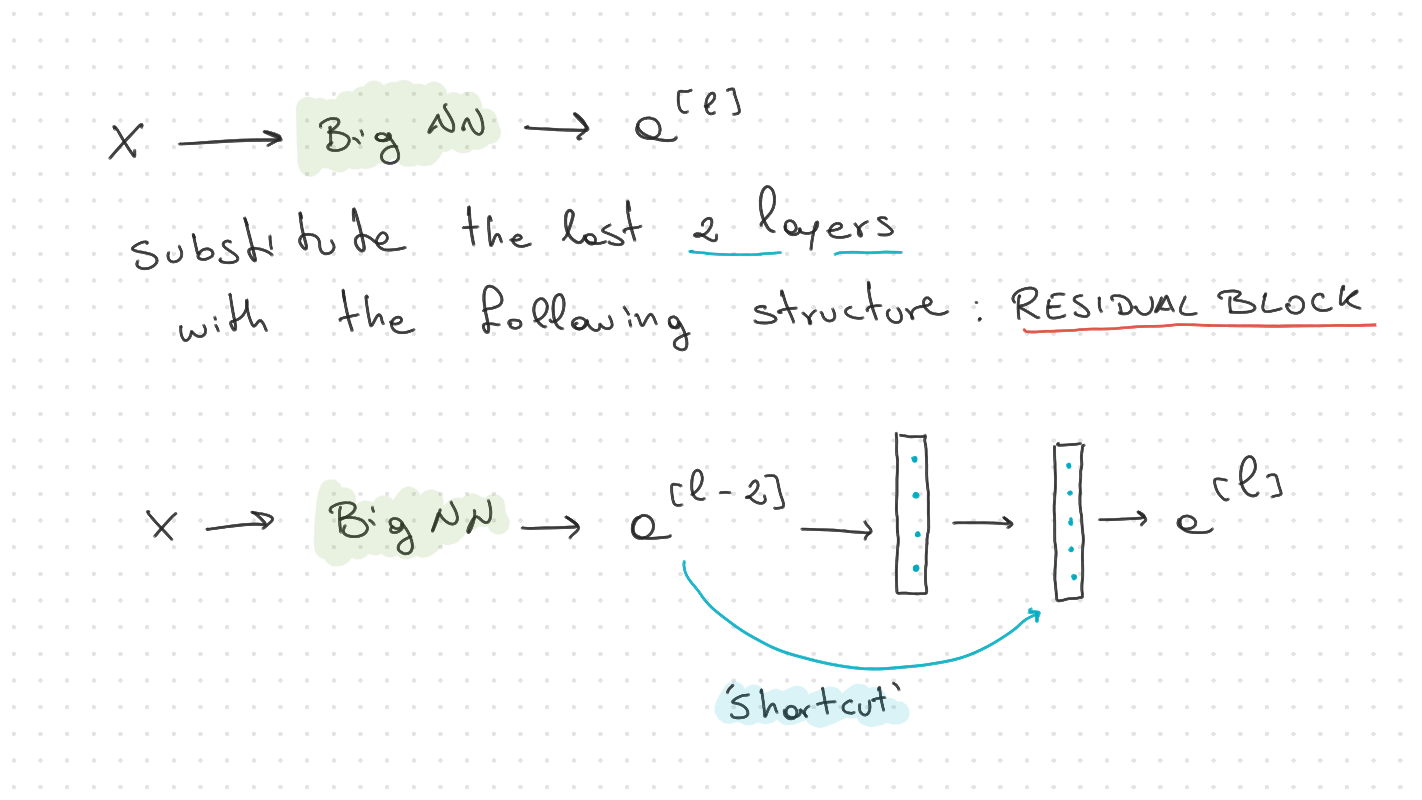 X → Big NN → a^[l]
substitute the last 2 layers
with the following structure : RESIDUAL BLOCK
X → Big NN → a^[l-2] → → a^[l]
'shortcut'